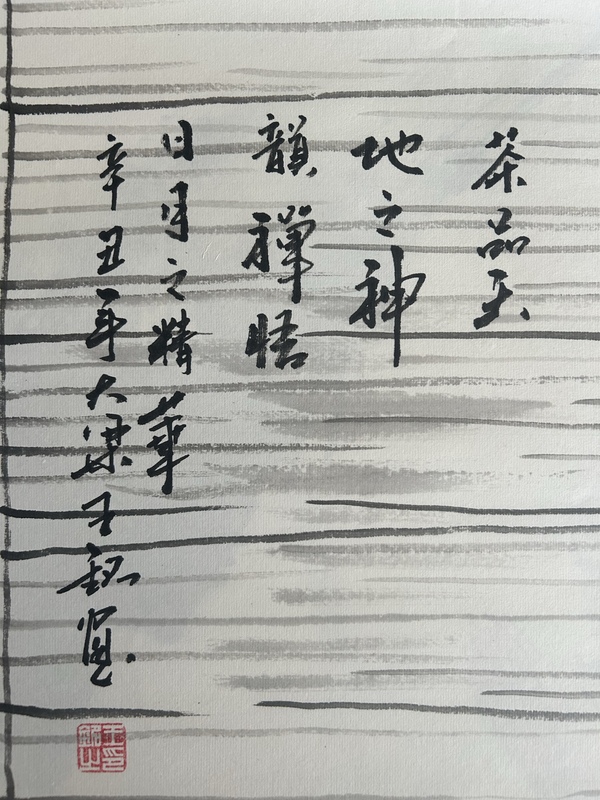 茶品天
地之神
韻禪悟
日月之精華
辛丑年大梁王銘賓